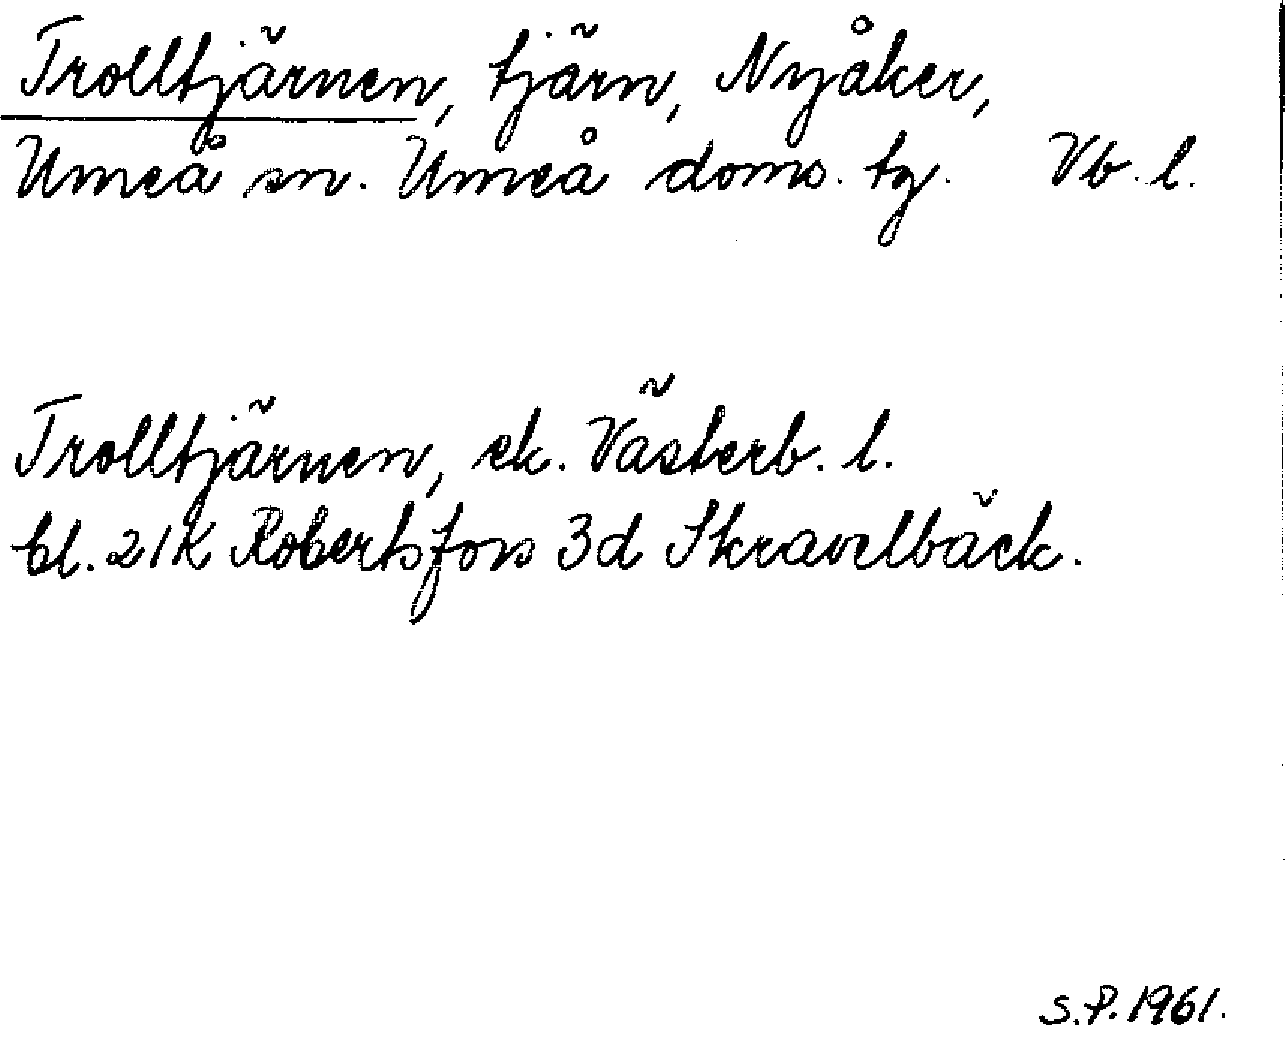 Trolltjärnen, tjärn, Nyåker,
Umeå sn. Umeå doms. tg. Vb. l.
Trolltjärnen, ek. Västerb. l.
bl. 21K Robertsfors 3d Skravelbäck.
S.P. 1961.